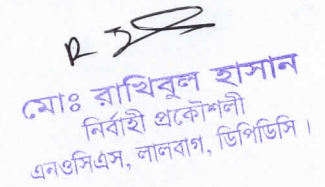 মোঃ রাখিবুল হাসান
নির্বাহী প্রকৌশলী
এনওসিএস, লালবাগ, ডিপিডিসি।